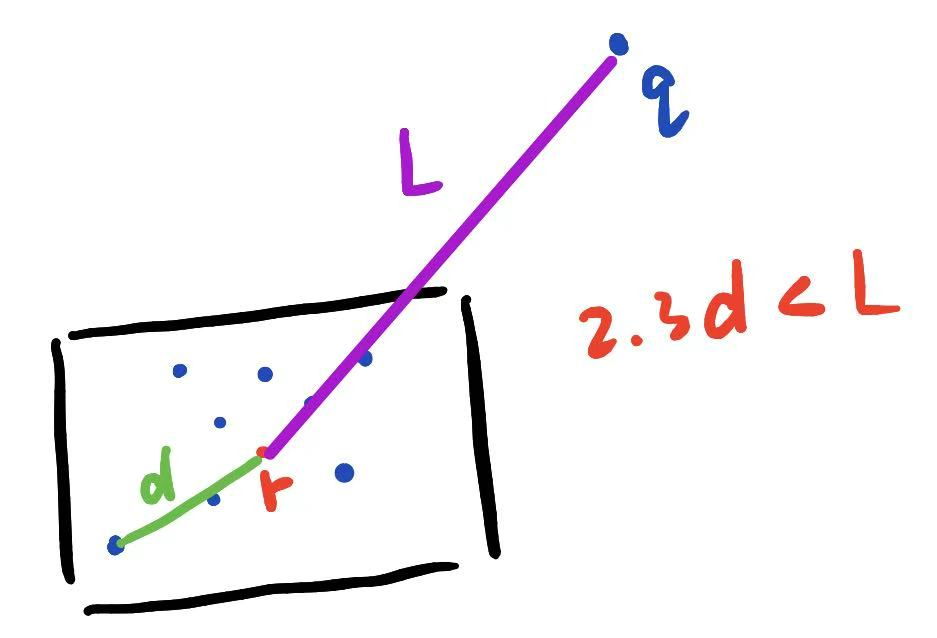 q
L
2.3d < L
d
r